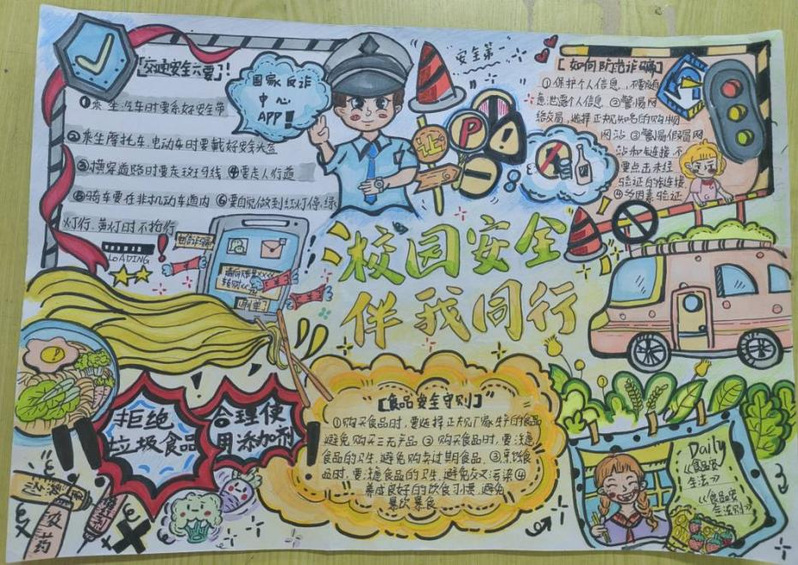 交通安全六要!
①乘坐汽车时要系好安全带
②乘坐摩托车、电动车时要戴好安全头盔
③横穿道路时要走斑马线 ④要走人行道
⑤骑车要在非机动车道内 ⑥要自觉做到红灯停,绿
灯行,黄灯时不抢行
LOADING
国家反诈
中心
APP!!
安全第一
让
P
!
[如何防范诈骗]
①保护个人信息
意泄露个人信息 ②警惕网
络交易,选择正规知名的购物
网站 ③警惕假冒网
站和链接,不
要点击未经
验证的链接
④多因素验证
校园安全
伴我同行
拒绝
垃圾食品
合理使
用添加剂
农药
[食品安全守则]
①购买食品时,要选择正规厂家生产的食品
避免购买三无产品 ② 购买食品时,要注意
食品的卫生,避免购买过期食品 ③烹饪食
品时,要注意食品的卫生,避免交叉污染 ④
养成良好的饮食习惯,避免
暴饮暴食
Daily